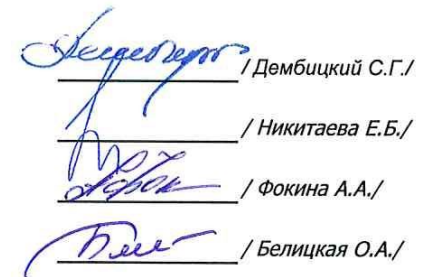 / Дембицкий С.Г./
/ Никитаева Е.Б./
/ Фокина А.А./
/ Белицкая О.А./